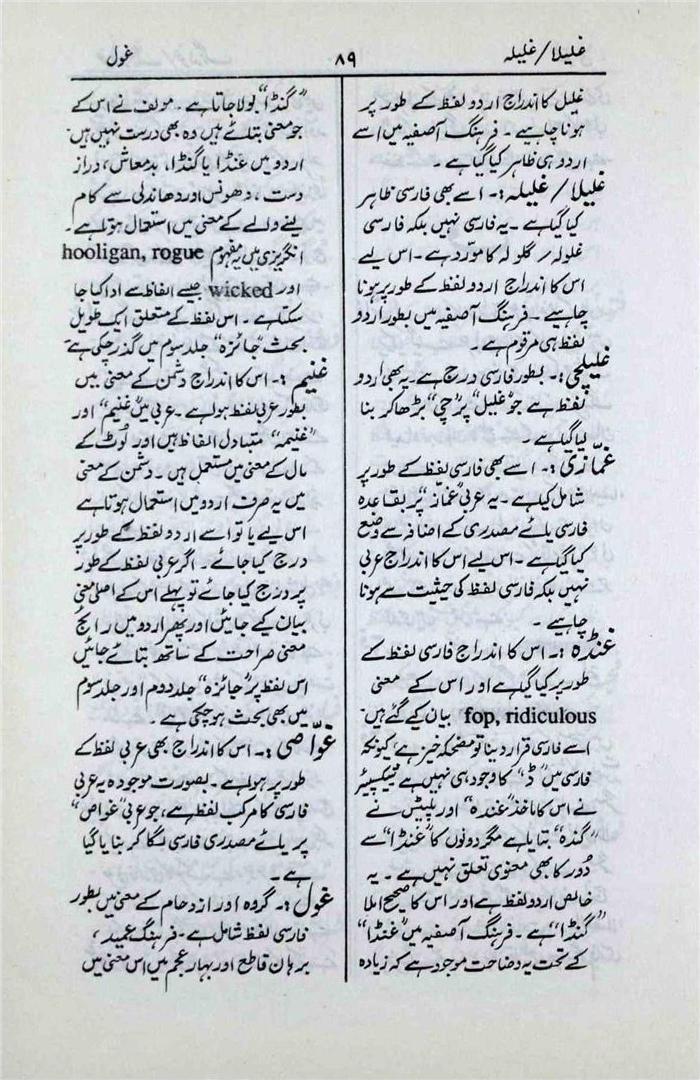 غلیلا/غلیلہ
۸۹
غول
غلل کا اندراج اردو لفظ کے طور پر
ہونا چاہیے ۔ فرہنگ آصفیہ میں اسے
اردو ہی ظاہر کیا گیا ہے ۔
غلیلا / غلیلہ :۔ اسے بھی فارسی ظاہر
کیا گیا ہے ۔ یہ فارسی نہیں بلکہ فارسی
غلولہ / گلولہ کا مورّد ہے ۔ اس لیے
اس کا اندراج اردو لفظ کے طور پر ہونا
چاہیے ۔ فرہنگ آصفیہ میں بطور اردو
لفظ ہی مرقوم ہے ۔
غلیلچی :۔ بطور فارسی درج ہے ۔ یہ بھی اردو
لفظ ہے جو ”غلیل“ پر ”چی“ بڑھا کر بنا
لیا گیا ہے ۔
غمّازی :۔ اسے بھی فارسی لفظ کے طور پر
شامل کیا ہے ۔ یہ عربی ”غماز“ پر بقاعدہ
فارسی یائے مصدری کے اضافہ سے وضع
کیا گیا ہے ۔ اس لیے اس کا اندراج عربی
نہیں بلکہ فارسی لفظ کی حیثت سے ہونا
چاہیے ۔
غنڈہ :۔ اس کا اندراج فارسی لفظ کے
طور پر کیا گیا ہے اور اس کے معنی
fop, ridiculous بیان کیے گئے ہیں ۔
اسے فارسی قرار دینا تو مضحکہ خیز ہے کیونکہ
فارسی میں ”ڈ“ کا وجود ہی نہیں ہے ٹیکسپیئر
نے اس کا ماخذ ”غندہ“ اور پلیٹس نے
”گندہ“ بتایا ہے مگر دونوں کا ”غنڈا“ سے
دُور کا بھی معنوی تعلق نہیں ہے ۔ یہ
خالص اردو لفظ ہے اور اس کا صحیح املا
”گنڈا“ ہے ۔ فرہنگ آصفیہ میں ”غنڈا“
کے تحت یہ وضاحت موجود ہے کہ زیادہ
”گنڈا“ بولا جاتا ہے ۔ مولف نے اس کے
جو معنی بتائے ہیں وہ بھی درست نہیں ہیں ۔
اردو میں غنڈا یا گنڈا، بدمعاش، دراز
دست ، دھونس اور دھاندلی سے کام
لینے والے کے معنی میں استعمال ہوتا ہے ۔
انگریزی میں یہ مفہوم hooligan, rogue
اور wicked جیسے الفاظ سے ادا کیا جا
سکتا ہے ۔ اس لفظ کے متعلق ایک طویل
بحث ”جائزہ“ جلد سوم میں گذر چکی ہے
غنیم :۔ اس کا اندراج دشمن کے معنی میں
بطور عربی لفظ ہوا ہے ۔ عربی میں ”غنیم“ اور
”غنیمہ“ متبادل الفاظ ہیں اور لُوٹ کے
مال کے معنی میں مستعمل ہیں ۔ دشمن کے معنی
میں یہ صرف اردو میں استعمال ہوتا ہے
اس لیے یا تو اسے اردو لفظ کے طور پر
درج کیا جائے ۔ اگر عربی لفظ کے طور
پر درج کیا جائے تو پہلے اس کے اصلی معنی
بیان کیے جایئں اور پھر اردو میں رائج
معنی صراحت کے ساتھ بتائے جائیں
اس لفظ پر ”جائزہ“ جلد دوم اور جلد سوم
میں بھی بحث ہو چکی ہے ۔
غوّاصی :۔ اس کا اندراج بھی عربی لفظ کے
طور پر ہوا ہے ۔ بصورت موجودہ یہ عربی
فارسی کا مرکب لفظ ہے، جو عربی ”غواص“
پر یائے مصدری فارسی لگا کر بنایا گیا
ہے ۔
غول :۔ گروہ اور ازدحام کے معنی میں بطور
فارسی لفظ شامل ہے ۔ فرہنگ عمید ،
برہان قاطع اور بہار عجم میں اس معنی میں